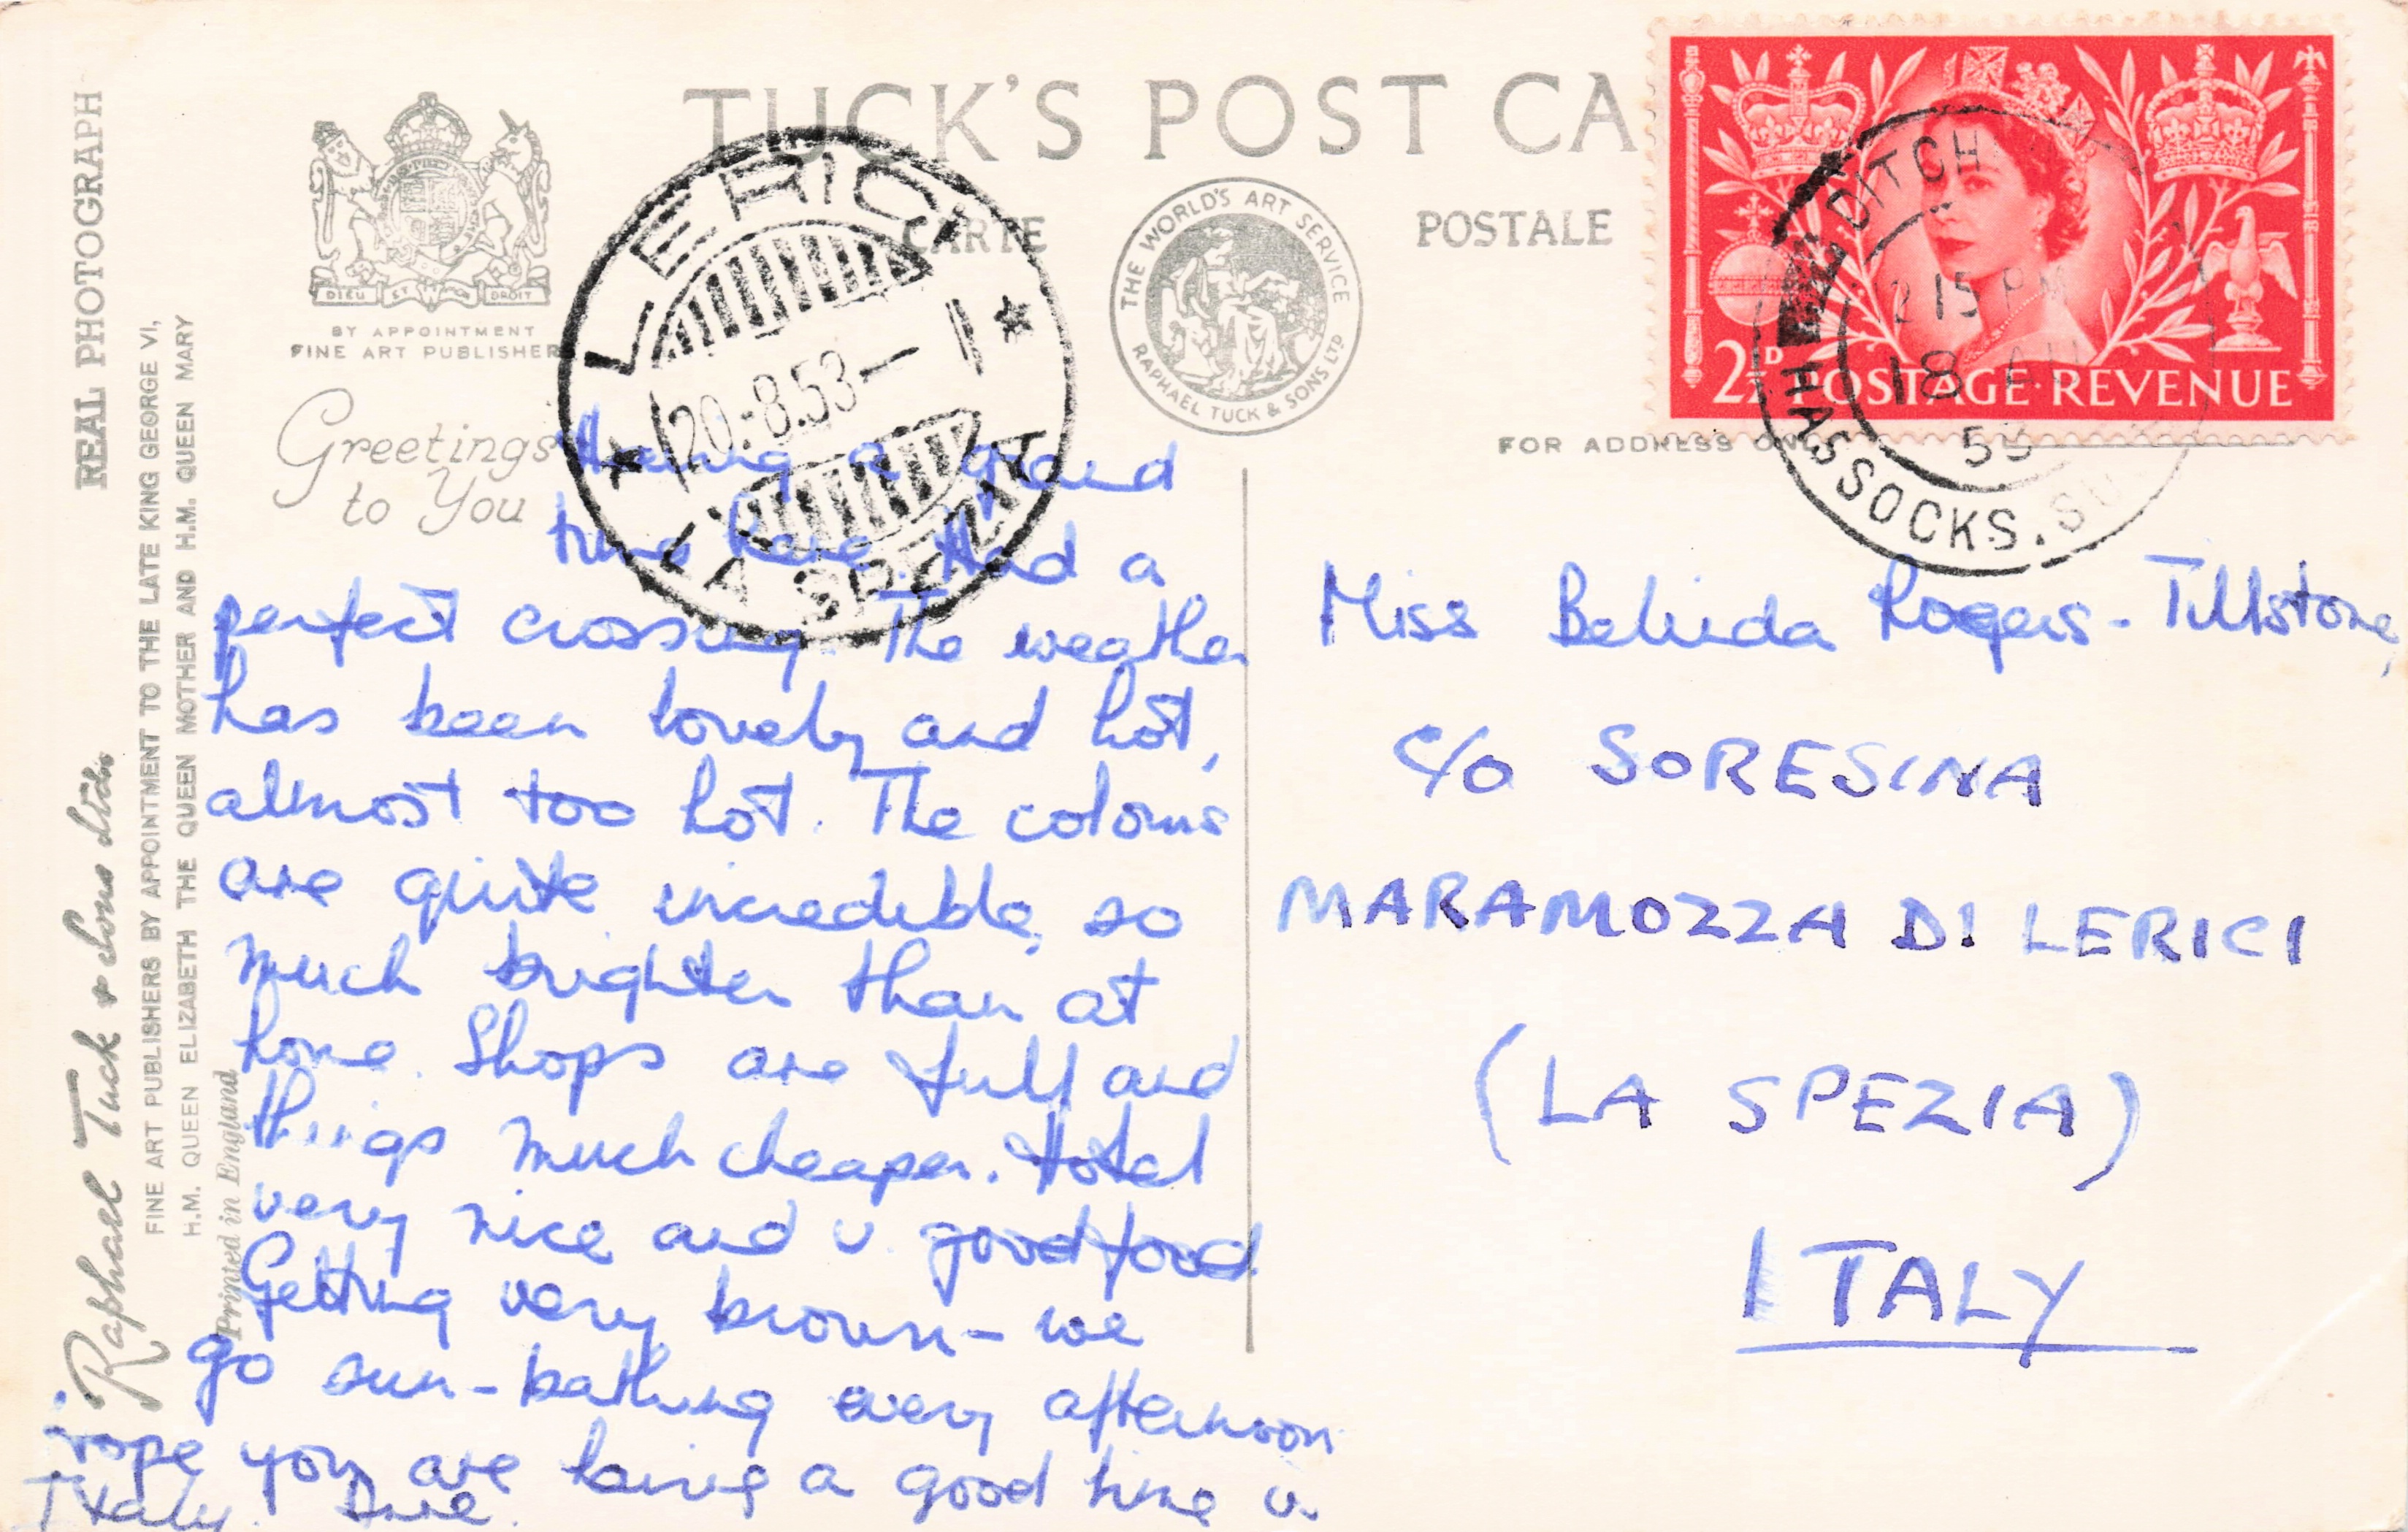 TUCK'S POST CA
CARTE POSTALE
REAL PHOTOGRAPH
DIEU ET MON DROIT
BY APPOINTMENT
FINE ART PUBLISHER
Greetings
to You
LERICI
20.-8.53-
LA SPEZIA
THE WORLD'S ART SERVICE
RAPHAEL TUCK & SONS LTD
2½D POSTAGE REVENUE
DITCH
2 15 PM
18 AU
53
HASSOCKS. SU
FOR ADDRESS ONL
Having a grand
time here. Had a
perfect crossing. The weather
has been lovely and hot,
almost too hot. The colours
are quite incredible, so
much brighter than at
home. Shops are full and
things much cheaper. Hotel
very nice and v. good food
Getting very brown - we
go sun-bathing every afternoon
Hope you are having a good time in
Italy.
Miss Belinda Rogers-Tillstone,
c/o SORESINA
MARAMOZZA DI LERICI
(LA SPEZIA)
ITALY
Raphael Tuck & Sons Ltd.
FINE ART PUBLISHERS BY APPOINTMENT TO THE LATE KING GEORGE VI,
H.M. QUEEN ELIZABETH THE QUEEN MOTHER AND H.M. QUEEN MARY
Printed in England